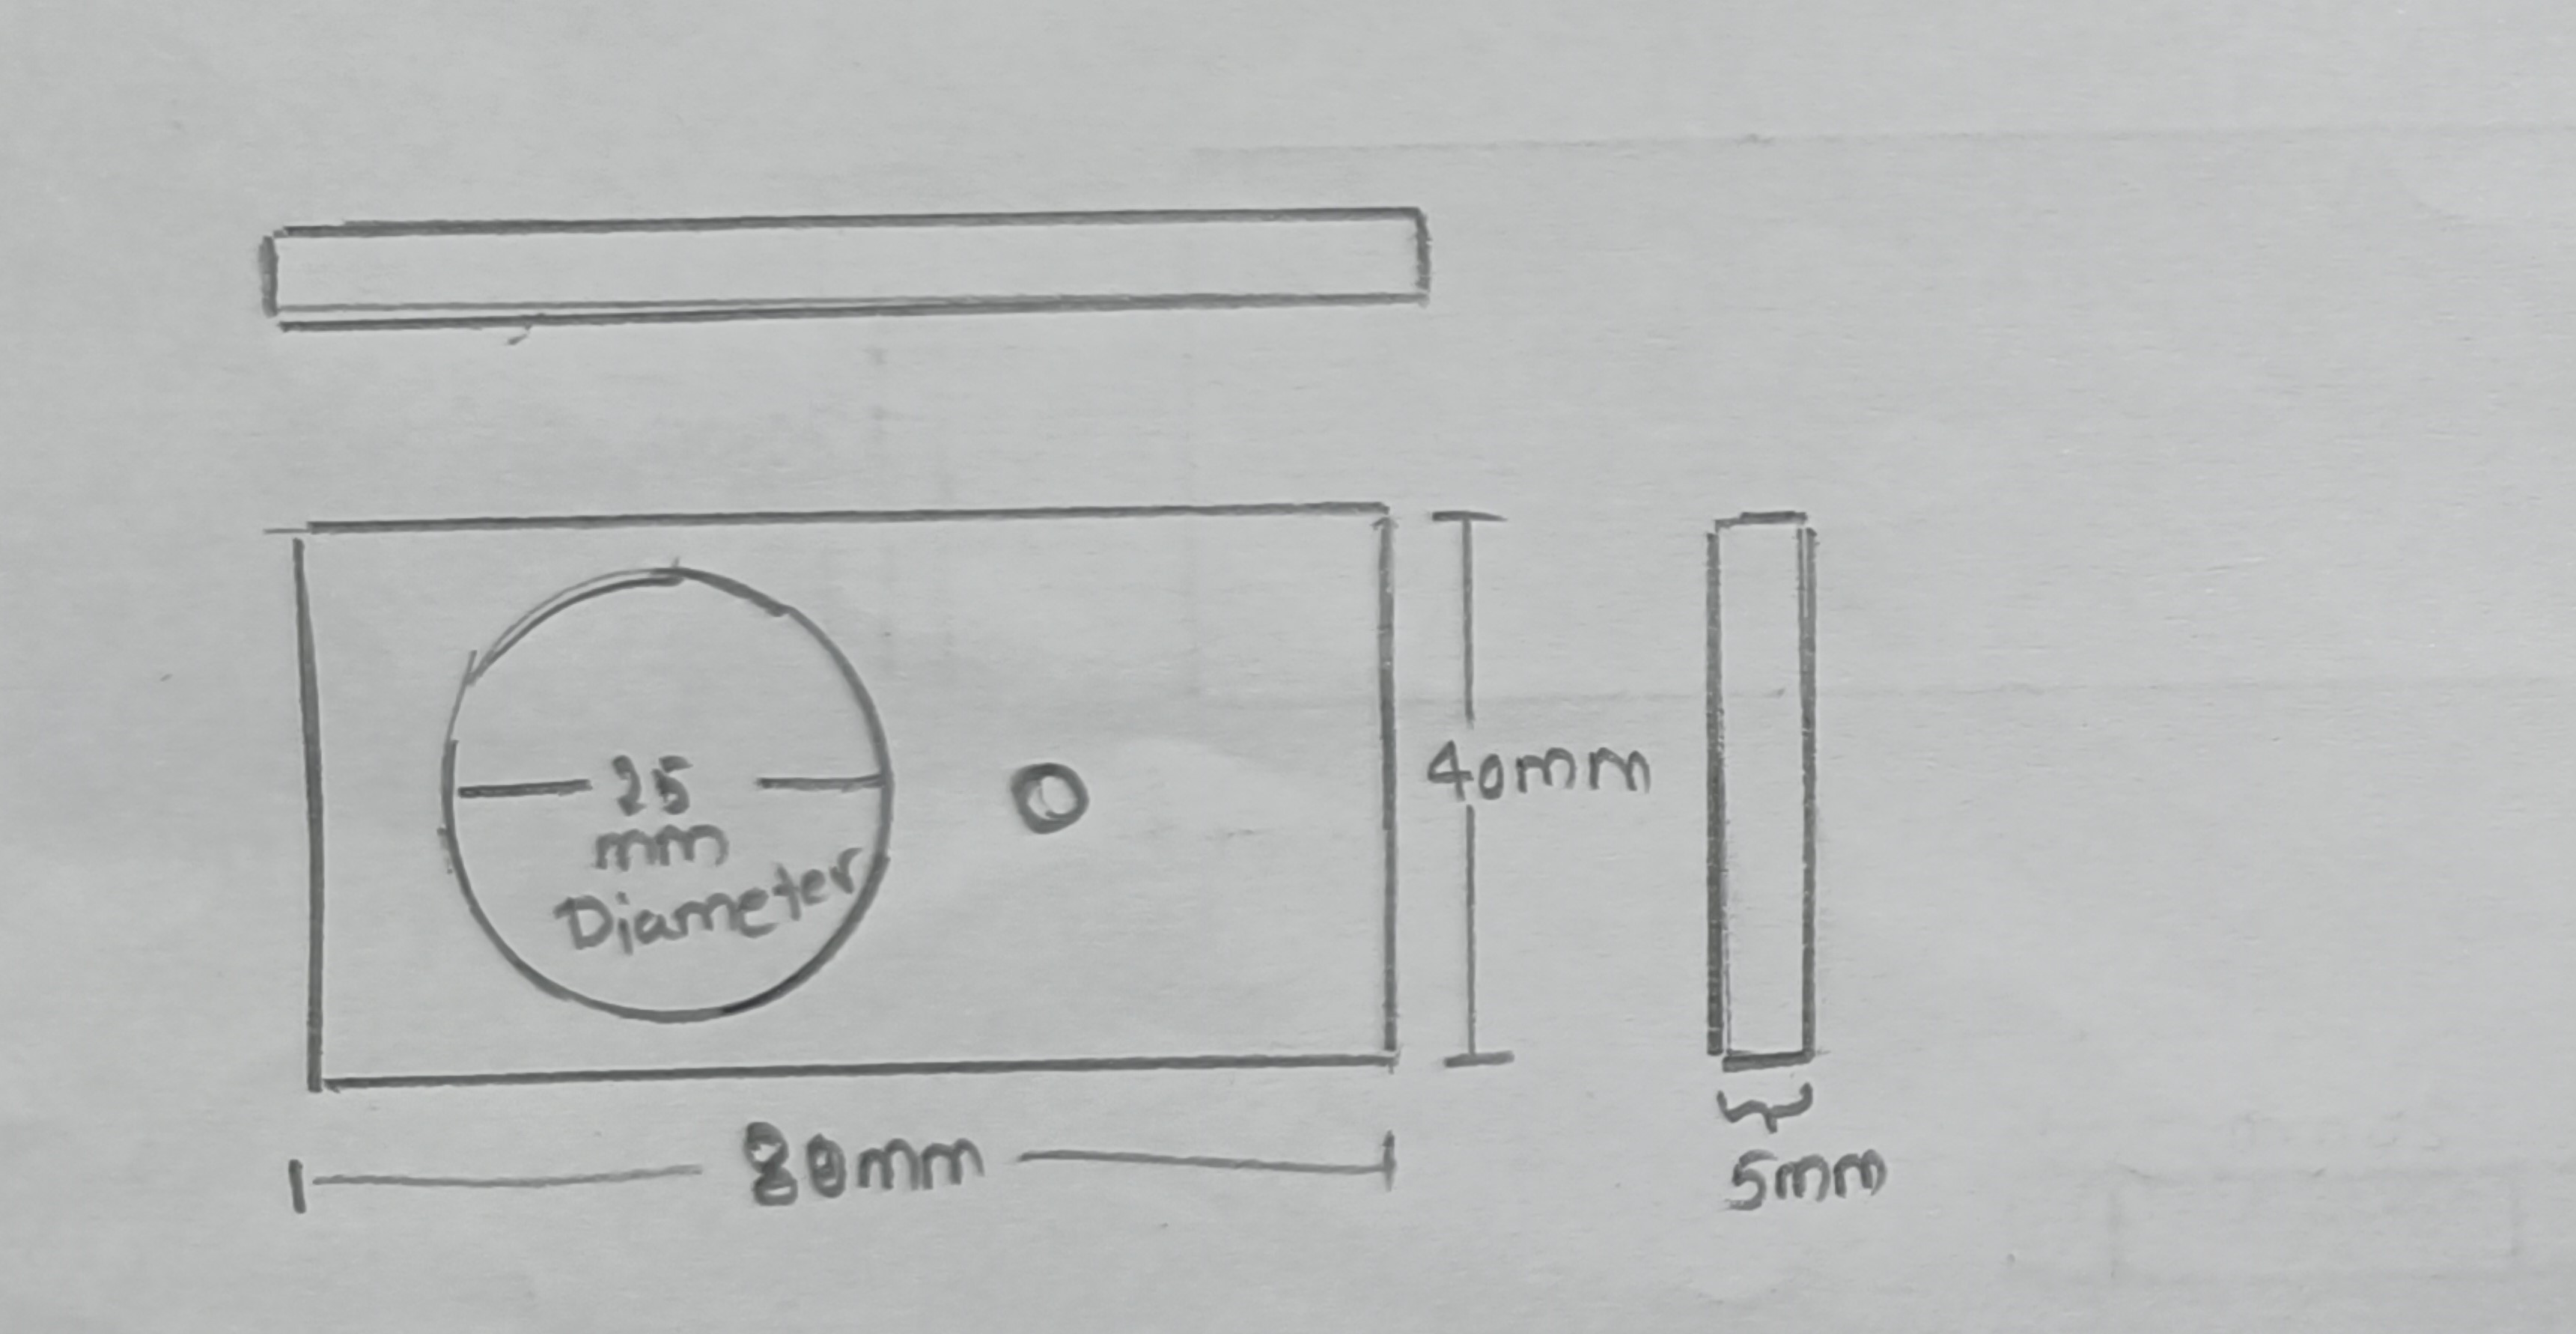 25
mm
Diameter
40mm
80mm
5mm